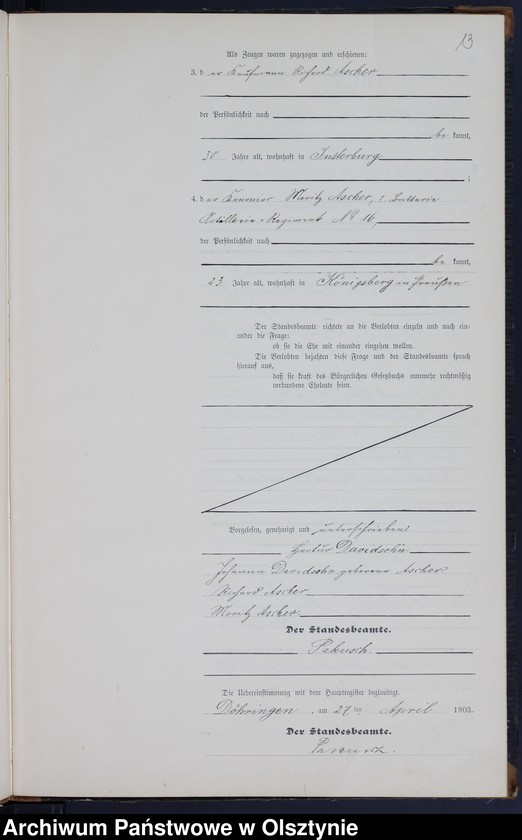 13
Als Zeugen waren zugezogen und erschienen:
3. der Kaufmann Richard Ascher
der Persönlichkeit nach
be kannt,
30 Jahre alt, wohnhaft in Insterburg
;
4. der Kanonier Moritz Ascher, 1. Batterie
Artillerie-Regiment No 16,
der Persönlichkeit nach
be kannt,
23 Jahre alt, wohnhaft in Königsberg in Preußen
Der Standesbeamte richtete an die Verlobten einzeln und nach ein-
ander die Frage:
ob sie die Ehe mit einander eingehen wollen.
Die Verlobten bejahten diese Frage und der Standesbeamte sprach
hierauf aus,
daß sie kraft des Bürgerlichen Gesetzbuchs nunmehr rechtmäßig
verbundene Eheleute seien.
Vorgelesen, genehmigt und unterschrieben
Davidsohn
Johanna Davidsohn geborene Ascher
Richard Ascher
Moritz Ascher
Der Standesbeamte.
Pakusch.
Die Uebereinstimmung mit dem Hauptregister beglaubigt.
Döhringen, am 27ten April 1903.
Der Standesbeamte.
Pakusch.
Archiwum Państwowe w Olsztynie